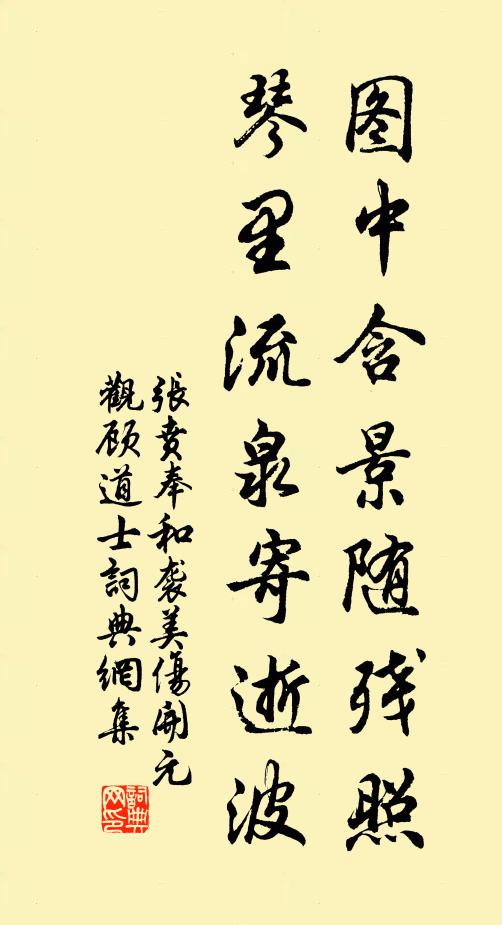 图中含景随残照
琴里流泉寄逝波
張賁奉和袭美傷開元
觀顾道士詞典網集
詞典网印